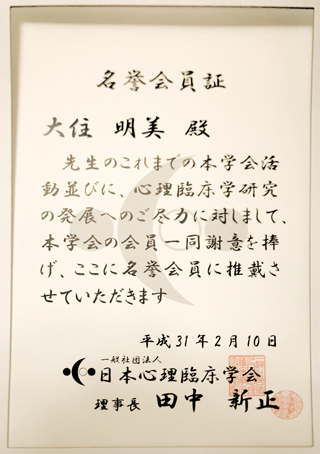 名誉会員証
大住 明美 殿
先生のこれまでの本学会活
動並びに、心理臨床学研究
の発展へのご尽力に対しまして、
本学会の会員一同謝意を捧
げ、ここに名誉会員に推戴さ
せていただきます
平成31年2月10日
一般社団法人
日本心理臨床学会
理事長 田中 新正